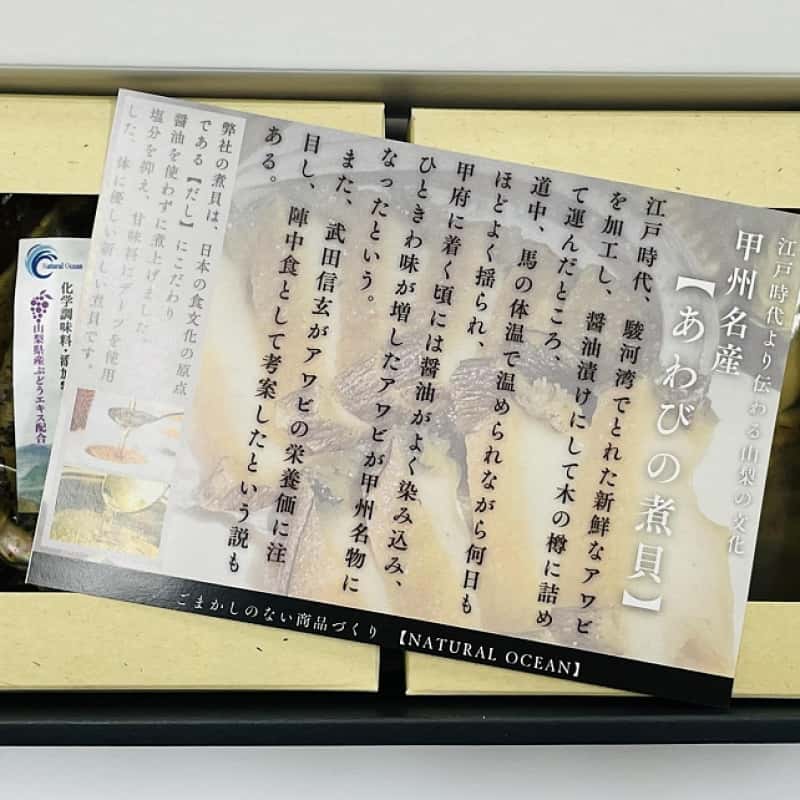 江戸時代より伝わる山梨の文化
甲州名産
【あわびの煮貝】
江戸時代、駿河湾でとれた新鮮なアワビ
を加工し、醤油漬けにして木の樽に詰め
て運んだところ、
道中、馬の体温で温められながら何日も
ほどよく揺られ、
甲府に着く頃には醤油がよく染み込み、
ひときわ味が増したアワビが甲州名物に
なったという。
また、武田信玄がアワビの栄養価に注
目し、陣中食として考案したという説も
ある。
弊社の煮貝は、日本の食文化の原点
である【だし】にこだわり
醤油を使わずに煮上げました。
塩分を抑え、甘味料にデーツを使用
した、体に優しい新しい煮貝です。
ごまかしのない商品づくり 【NATURAL OCEAN】
Natural Ocean
化学調味料・添加
山梨県産ぶどうエキス配合